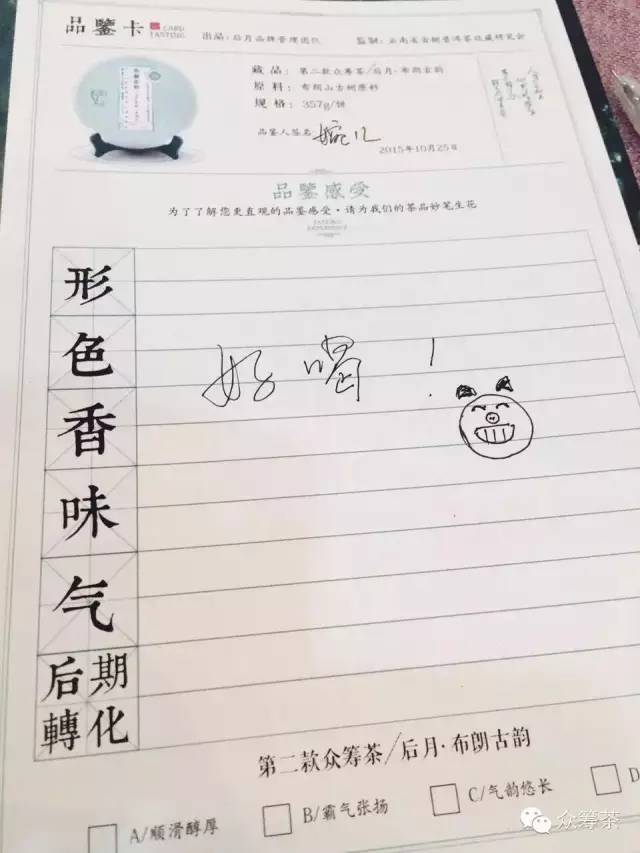 品鑒卡 CARD TASTING 出品：后月品牌管理团队 监制：云南省古树普洱茶收藏研究会
藏品：第二款众筹茶/后月·布朗古韵
原料：布朗山古树原料
规格：357g/饼
品鉴人签名 婉儿
2015年10月25日
品鑒感受
为了了解您更直观的品鉴感受·请为我们的茶品妙笔生花
TASTING EXPERIENCE
形
色
好喝！
香
味
气
后期
轉化
第二款众筹茶/后月·布朗古韵
A/顺滑醇厚 B/霸气张扬 C/气韵悠长 D
众筹茶